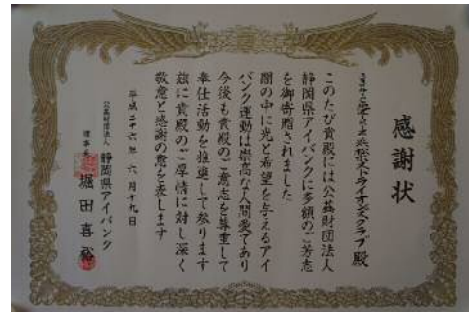 感謝状
ライオンズクラブ殿
このたび貴殿には公益財団法人
静岡県アイバンクに多額のご芳志
を御寄贈されました
闇の中に光と希望を与えるアイ
バンク運動は崇高な人間愛であり
今後も貴殿のご意志を尊重して
奉仕活動を推進して参ります
茲に貴殿のご厚情に対し深く
敬意と感謝の意を表します
平成二十六年六月十九日
公益財団法人
静岡県アイバンク
理事長 堀田喜裕